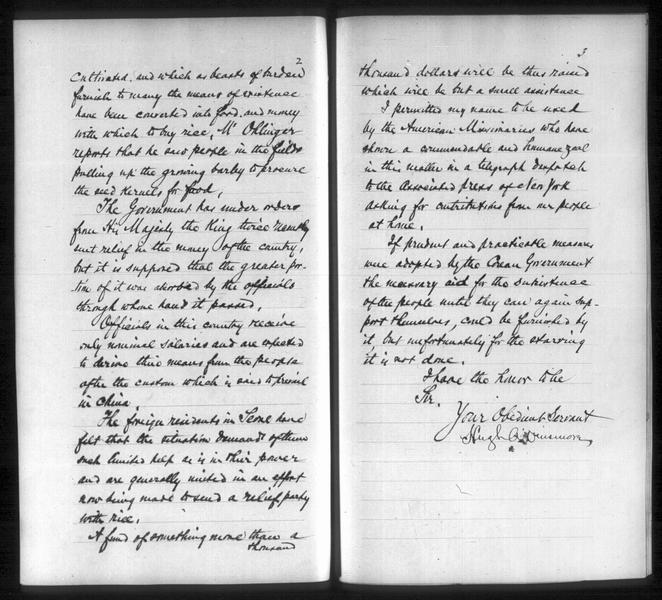 2
cultivated, and which as beasts of burden
furnish to many the means of existence
have been converted into food, and money
with which to buy rice. Mr Ohlinger
reports that he saw people in the fields
pulling up the growing barley to procure
the seed kernels for food.
The Government has under orders
from His Majesty the King twice
sent relief in the money of the country,
but it is supposed that the greater por-
tion of it was absorbed by the officials
through whose hand it passed.
Officials in this country receive
only nominal salaries and are expected
to derive their means from the people
after the custom which is said to prevail
in China.
The foreign residents in Seoul have
felt that the situation demands of them
such limited help as is in their power
and are generally united in an effort
now being made to send a relief party
with rice.
A fund of something more than a
thousand
3
thousand dollars will be thus raised
which will be but a small assistance
I permitted my name to be used
by the American Missionaries who have
shown a commendable and humane zeal
in this matter in a telegraph despatch
to the Associated press of New York
asking for contributions from our people
at home.
If prudent and practicable measures
were adopted by the Corean Government
the necessary aid for the subsistence
of the people until they can again sup-
port themselves, could be furnished by
it, but unfortunately for the starving
it is not done.
I have the honor to be
Sir,
Your Obedient Servant
Hugh A. Dinsmore